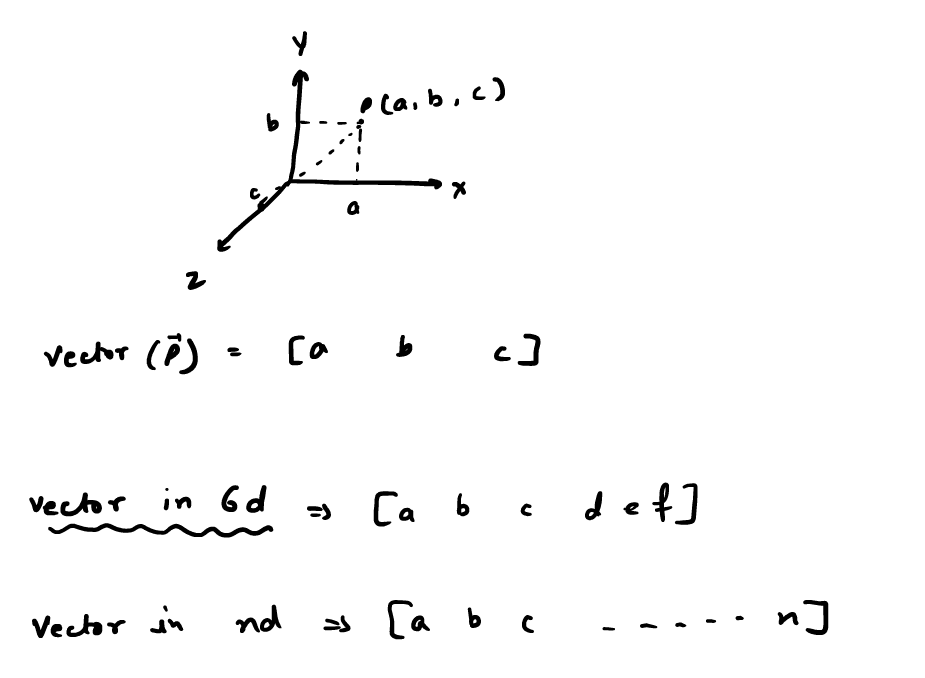 Y
P(a, b, c)
b
c
x
a
z
vector (P⃗) = [a b c]
vector in 6d ⇒ [a b c d e f]
vector in nd ⇒ [a b c - - - - - n]